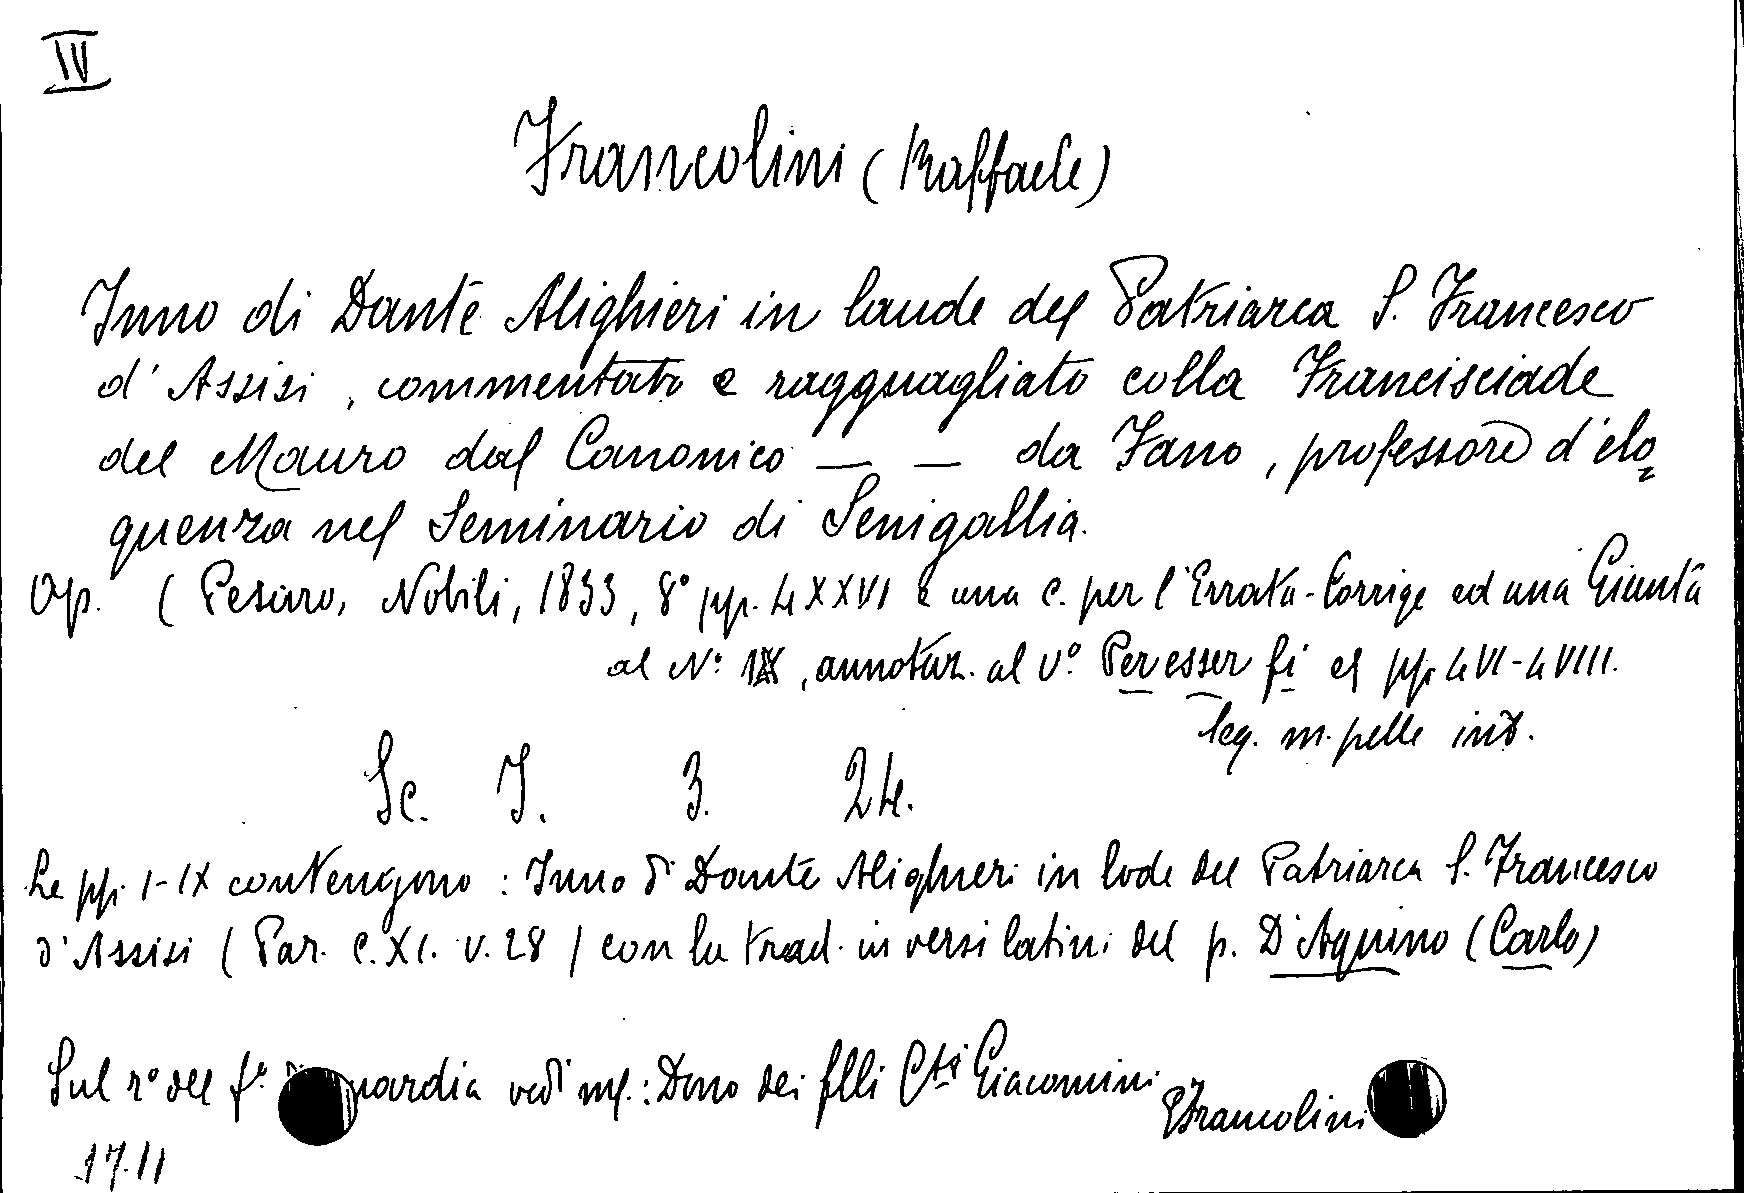 IV
Francolini (Raffaele)
Inno di Dante Alighieri in laude del Patriarca S. Francesco
d'Assisi, commentato e ragguagliato colla Francisciade
del Mauro dal Canonico — — da Fano, professore d'elo=
quenza nel Seminario di Senigallia.
Op. (Pesaro, Nobili, 1833, 8° pp. LXXVI e una c. per l'Errata-Corrige ed una Giunta
al N°. , annotaz. al v°. Per esser fi el pp. LVI-LVIII.
leg. m. pelle
Sc. I. 3. 24.
Le pp. I-IX contengono: Inno di Dante Alighieri in lode del Patriarca S. Francesco
d'Assisi (Par. C. XI. v. 28) con la trad. in versi latini del p. D'Aquino (Carlo)
Sul r° del f°. guardia vedi : Dono dei flli Cti Giacomini
Francolini
17.11